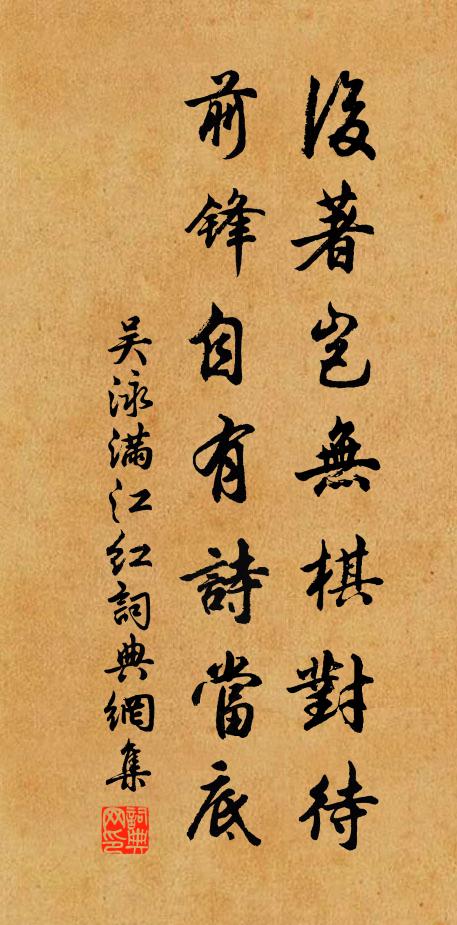 後著豈無棋對待
前鋒自有詩當底
吴泳满江红詞典網集
詞典网印